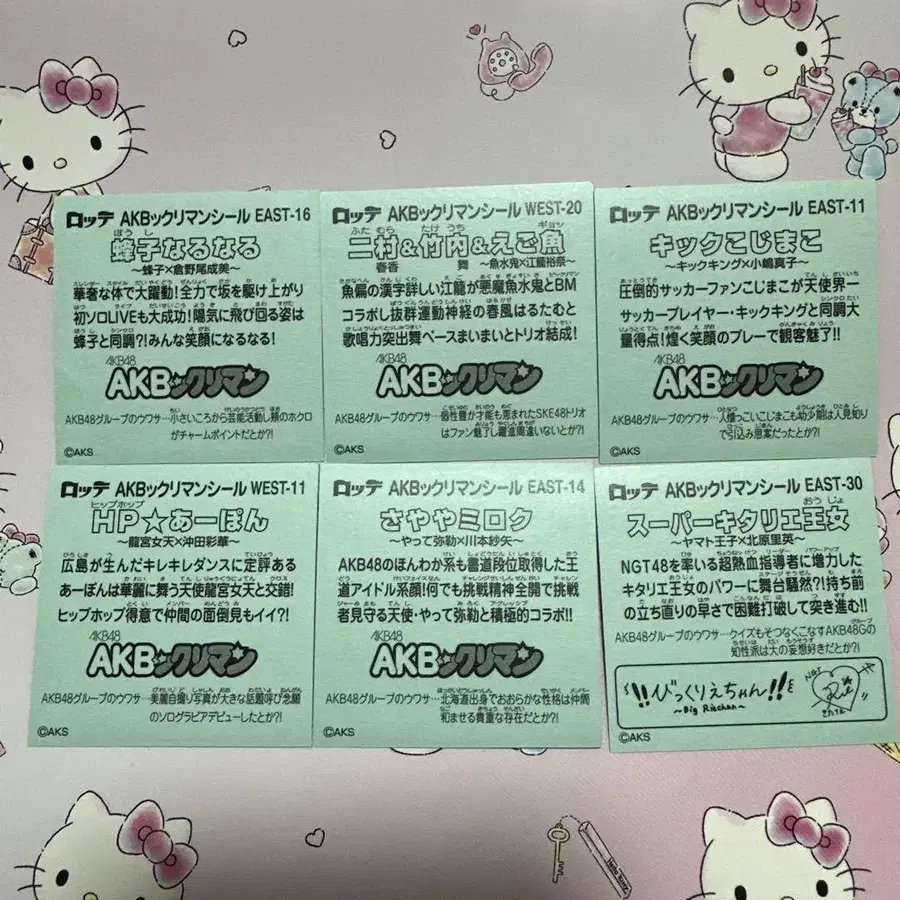 ロッテ AKBックリマンシール EAST-16
蜂子なるなる
～蜂子×倉野尾成美～
華奢な体で大躍動!全力で坂を駆け上がり
初ソロLIVEも大成功!陽気に飛び回る姿は
蜂子と同調?!みんな笑顔になるなる!
AKB48
AKBックリマン
AKB48グループのウワサ…小さいころから芸能活動し頬のホクロ
がチャームポイントだとか?!
©AKS
ロッテ AKBックリマンシール WEST-20
二村&竹内&えご魚
春香 舞 ～魚水鬼×江籠裕奈～
魚偏の漢字詳しい江籠が悪魔魚水鬼とBM
コラボし抜群運動神経の春風はるたむと
歌唱力突出舞ベースまいまいとトリオ結成!
AKB48
AKBックリマン
AKB48グループのウワサ…個性豊か才能も恵まれたSKE48トリオ
はファン魅了し躍進間違いないとか?!
©AKS
ロッテ AKBックリマンシール EAST-11
キックこじまこ
～キックキング×小嶋真子～
圧倒的サッカーファンこじまこが天使界一
サッカープレイヤー・キックキングと同調大
量得点!煌く笑顔のプレーで観客魅了!!
AKB48
AKBックリマン
AKB48グループのウワサ…人懐っこいこじまこも幼少期は人見知り
で引込み思案だったとか?!
©AKS
ロッテ AKBックリマンシール WEST-11
ヒップホップ
HP★あーぽん
～龍宮女天×沖田彩華～
広島が生んだキレキレダンスに定評ある
あーぽんは華麗に舞う天使龍宮女天と交錯!
ヒップホップ得意で仲間の面倒見もイイ?!
AKB48
AKBックリマン
AKB48グループのウワサ…美麗自撮り写真が大きな話題呼び念願
のソログラビアデビューしたとか?!
©AKS
ロッテ AKBックリマンシール EAST-14
さややミロク
～やって弥勒×川本紗矢～
AKB48のほんわか系も書道段位取得した王
道アイドル系顔!何でも挑戦精神全開で挑戦
者見守る天使・やって弥勒と積極的コラボ!!
AKB48
AKBックリマン
AKB48グループのウワサ…北海道出身でおおらかな性格は仲間
和ませる貴重な存在だとか?!
©AKS
ロッテ AKBックリマンシール EAST-30
スーパーキタリエ王女
～ヤマト王子×北原里英～
NGT48を率いる超熱血指導者に増力した
キタリエ王女のパワーに舞台騒然?!持ち前
の立ち直りの早さで困難打破して突き進む!!
AKB48グループのウワサ…クイズもそつなくこなすAKB48Gの
知性派は大の妄想好きだとか?!
!!びっくりえちゃん!!
～Big Riechan～
NGT
Rie
きたりえ
©AKS
Hello Kitty